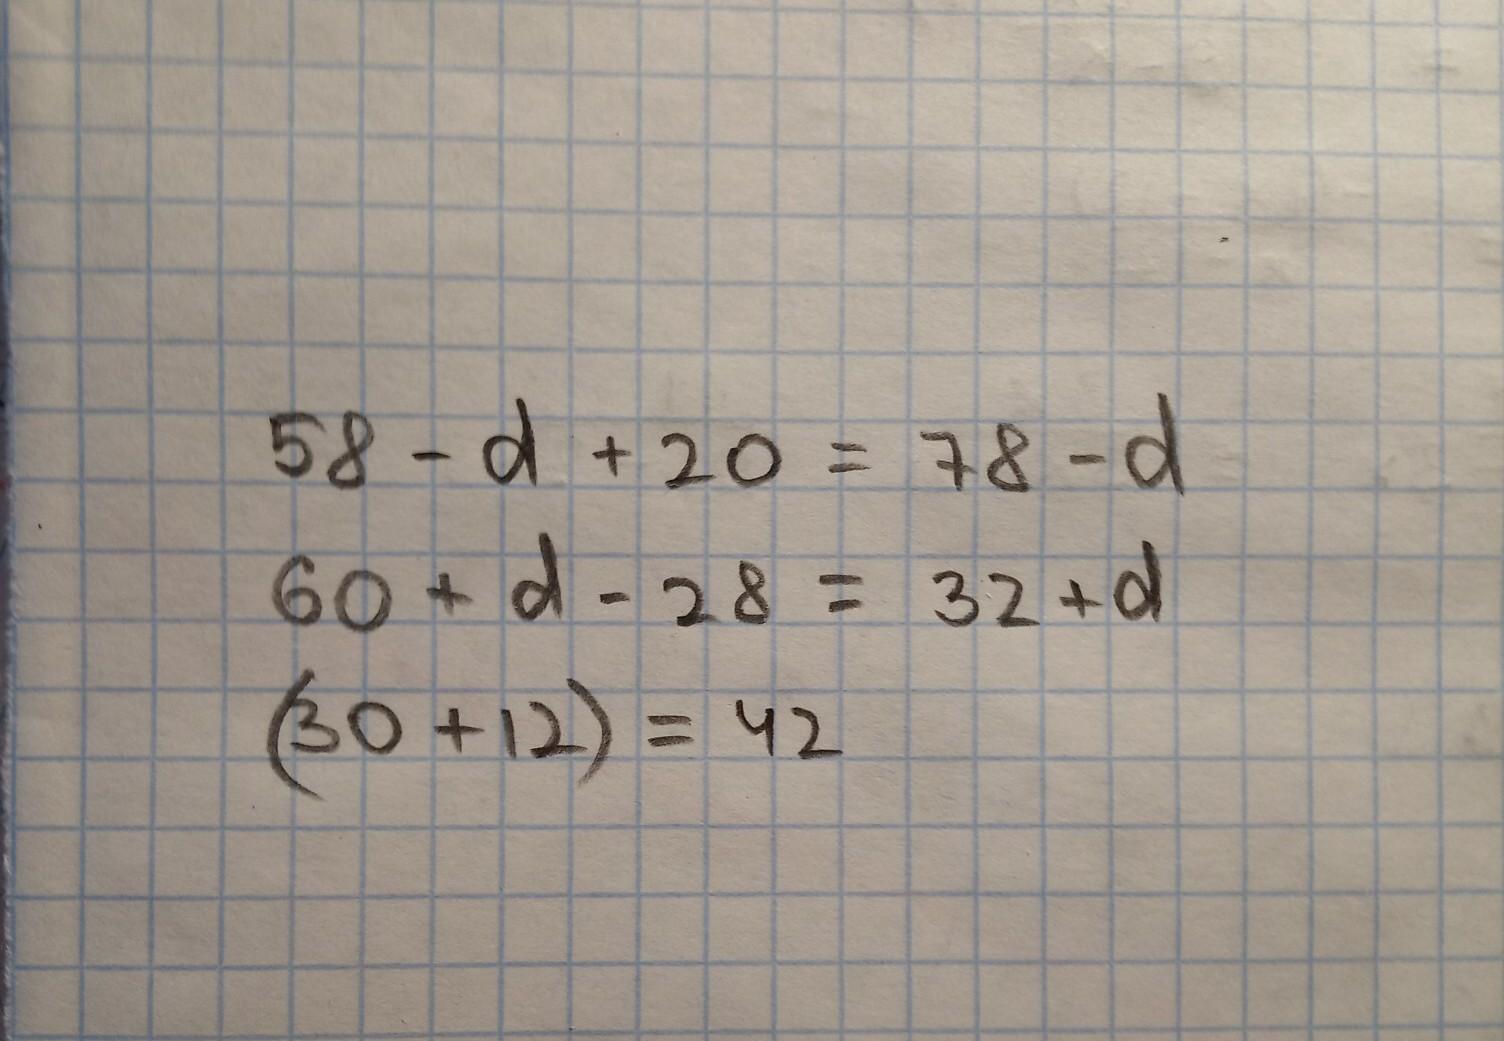 58 - d + 20 = 78 - d
60 + d - 28 = 32 + d
(30 + 12) = 42